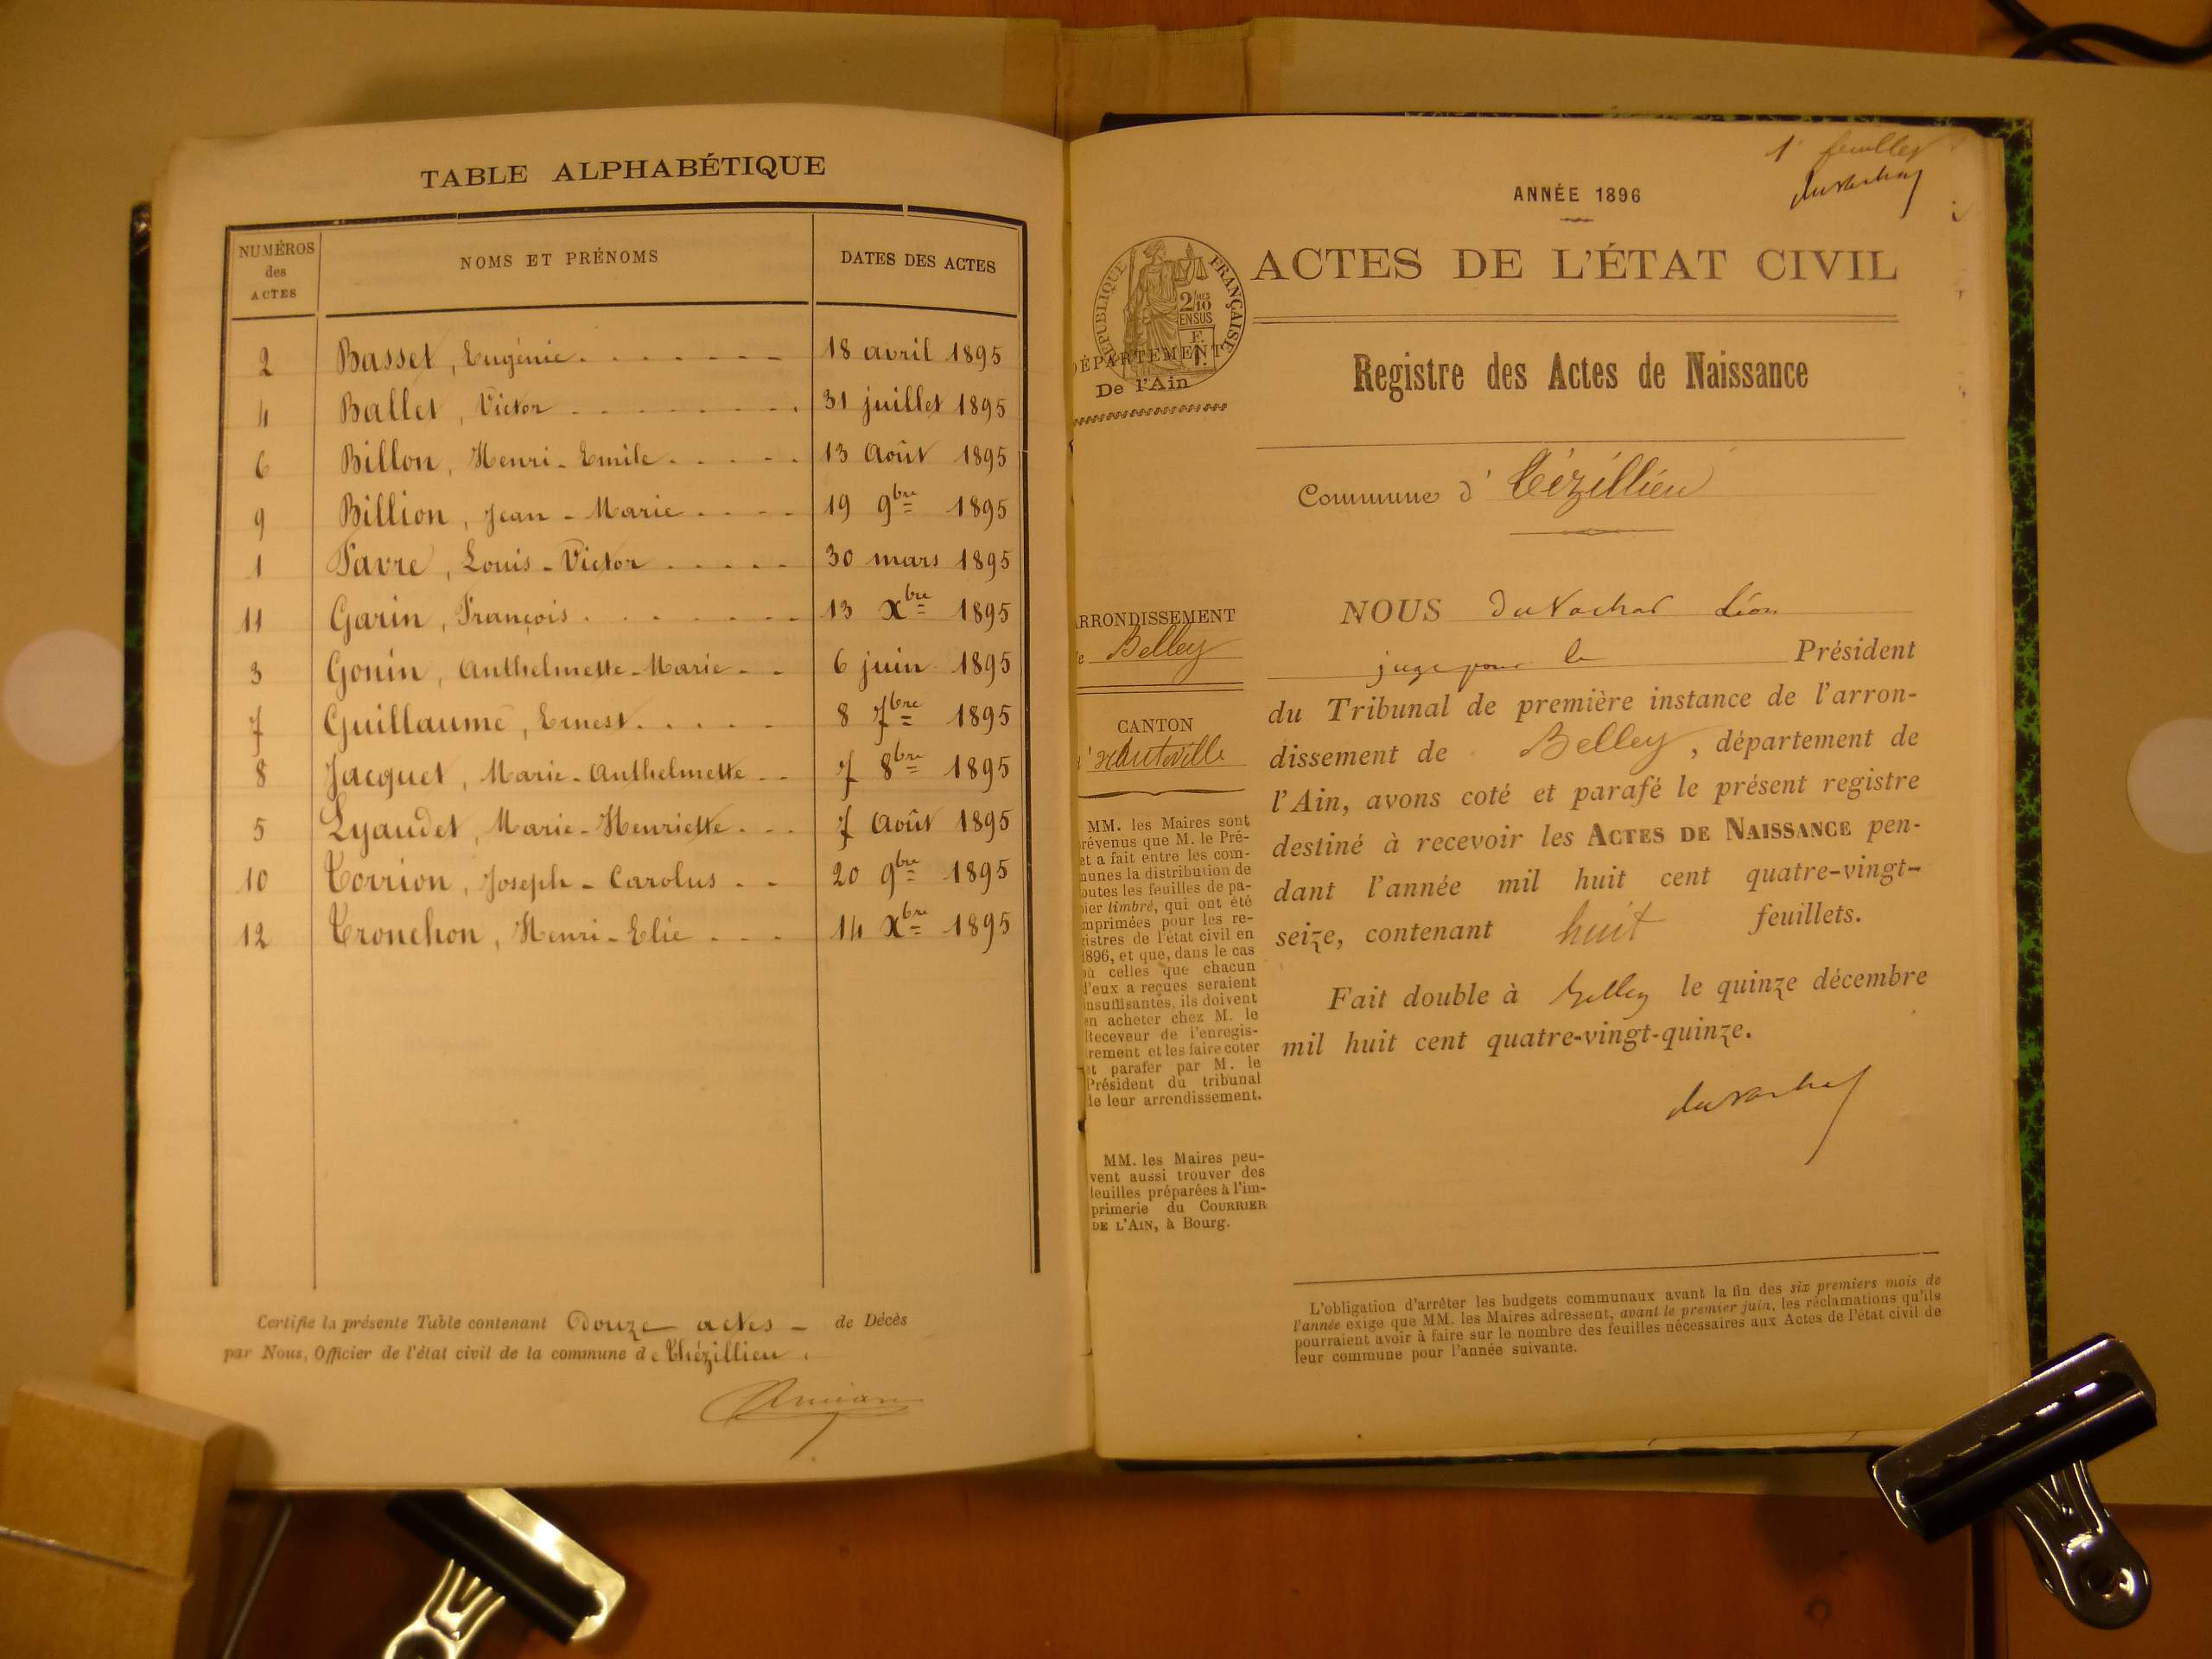 TABLE ALPHABÉTIQUE
NUMÉROS des ACTES
NOMS ET PRÉNOMS
DATES DES ACTES
2 Basset, Eugénie 18 avril 1895
4 Ballet, Victor 31 juillet 1895
6 Billon, Henri-Emile 13 Août 1895
9 Billion, Jean-Marie 19 9bre 1895
1 Favre, Louis-Victor 30 mars 1895
11 Garin, François 13 Xbre 1895
3 Gonin, Anthelmette-Marie 6 juin 1895
7 Guillaume, Ernest 8 7bre 1895
8 Jacquet, Marie-Anthelmette 7 8bre 1895
5 Lyaudet, Marie-Henriette 7 Août 1895
10 Torrion, Joseph-Carolus 20 9bre 1895
12 Tronchon, Henri-Elie 14 Xbre 1895
Certifie la présente Table contenant Douze actes de Décès
par Nous, Officier de l'état civil de la commune de Thézillieu.
1er feuillet
ANNÉE 1896
ACTES DE L'ÉTAT CIVIL
RÉPUBLIQUE FRANÇAISE
2/10 EN SUS
DÉPARTEMENT
De l'Ain
Registre des Actes de Naissance
Commune d' Tézillieu
ARRONDISSEMENT
de Belley
CANTON
d'Hauteville
MM. les Maires sont
prévenus que M. le Pré-
fet a fait entre les com-
munes la distribution de
toutes les feuilles de pa-
pier timbré, qui ont été
imprimées pour les re-
gistres de l'état civil en
1896, et que, dans le cas
où celles que chacun
d'eux a reçues seraient
insuffisantes, ils doivent
en acheter chez M. le
Receveur de l'enregis-
trement et les faire coter
et parafer par M. le
Président du tribunal
de leur arrondissement.
MM. les Maires peu-
vent aussi trouver des
feuilles préparées à l'im-
primerie du COURRIER
DE L'AIN, à Bourg.
NOUS Duvachat Léon
juge pour le Président
du Tribunal de première instance de l'arron-
dissement de Belley, département de
l'Ain, avons coté et parafé le présent registre
destiné à recevoir les ACTES DE NAISSANCE pen-
dant l'année mil huit cent quatre-vingt-
seize, contenant huit feuillets.
Fait double à Belley le quinze décembre
mil huit cent quatre-vingt-quinze.
L'obligation d'arrêter les budgets communaux avant la fin des six premiers mois de
l'année exige que MM. les Maires adressent, avant le premier juin, les réclamations qu'ils
pourraient avoir à faire sur le nombre des feuilles nécessaires aux Actes de l'état civil de
leur commune pour l'année suivante.